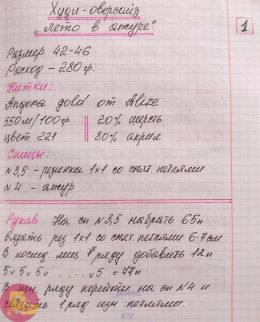 Худи-оверсайз
"Лето в ажуре"
1
Размер 42-46
Расход - 280гр.
Нитки:
Ангора gold от Alize
550м/100гр 20% шерсть
цвет 221 80% акрил
Спицы:
№3,5 - резинка 1х1 со снят. петлями
№4 - ажур
Рукав На сп №3,5 набрать 65п
вязать рез 1х1 со снят. петлями 6-7см
В послед. лиц ряду добавить 12п
5v 5v 5v ..... v5 = 77п
В изн. ряду перейти на сп №4 и
1 ряд изн петлями.